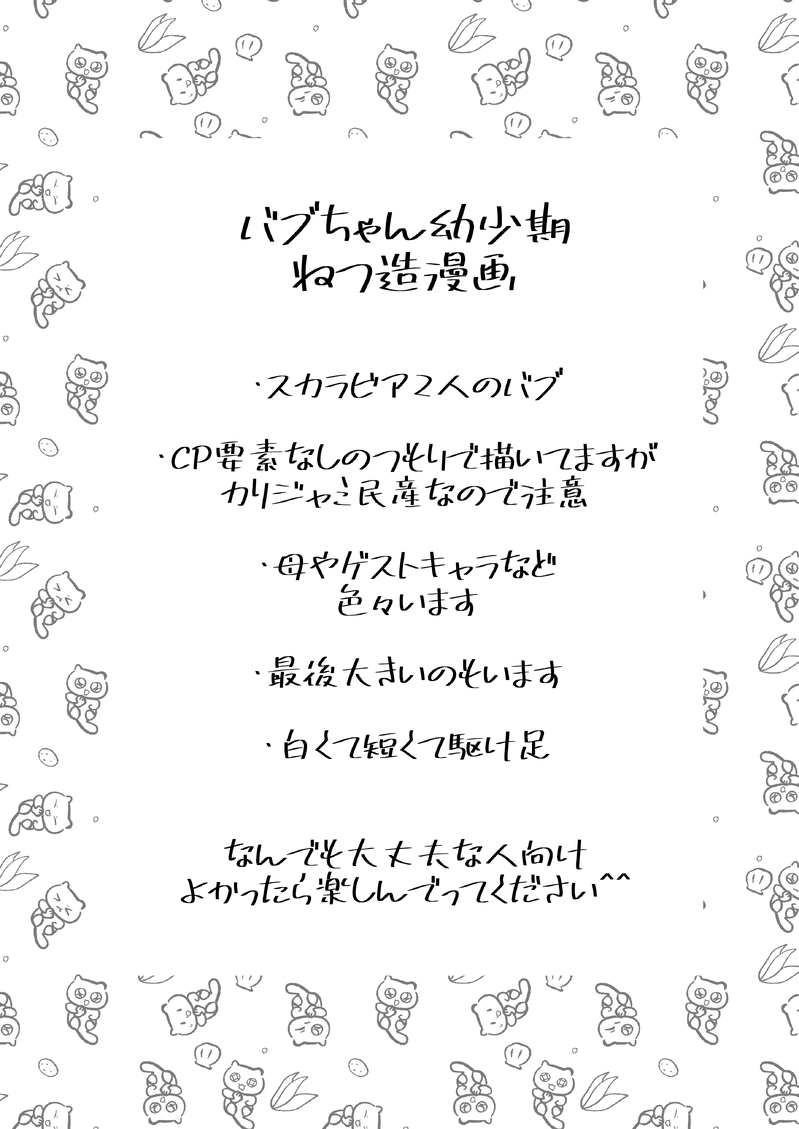 バブちゃん幼少期
ねつ造漫画
・スカラビア2人のバブ
・CP要素なしのつもりで描いてますが
カリジャミ民産なので注意
・母やゲストキャラなど
色々います
・最後大きいのもいます
・白くて短くて駆け足
なんでも大丈夫な人向け
よかったら楽しんでってください^^